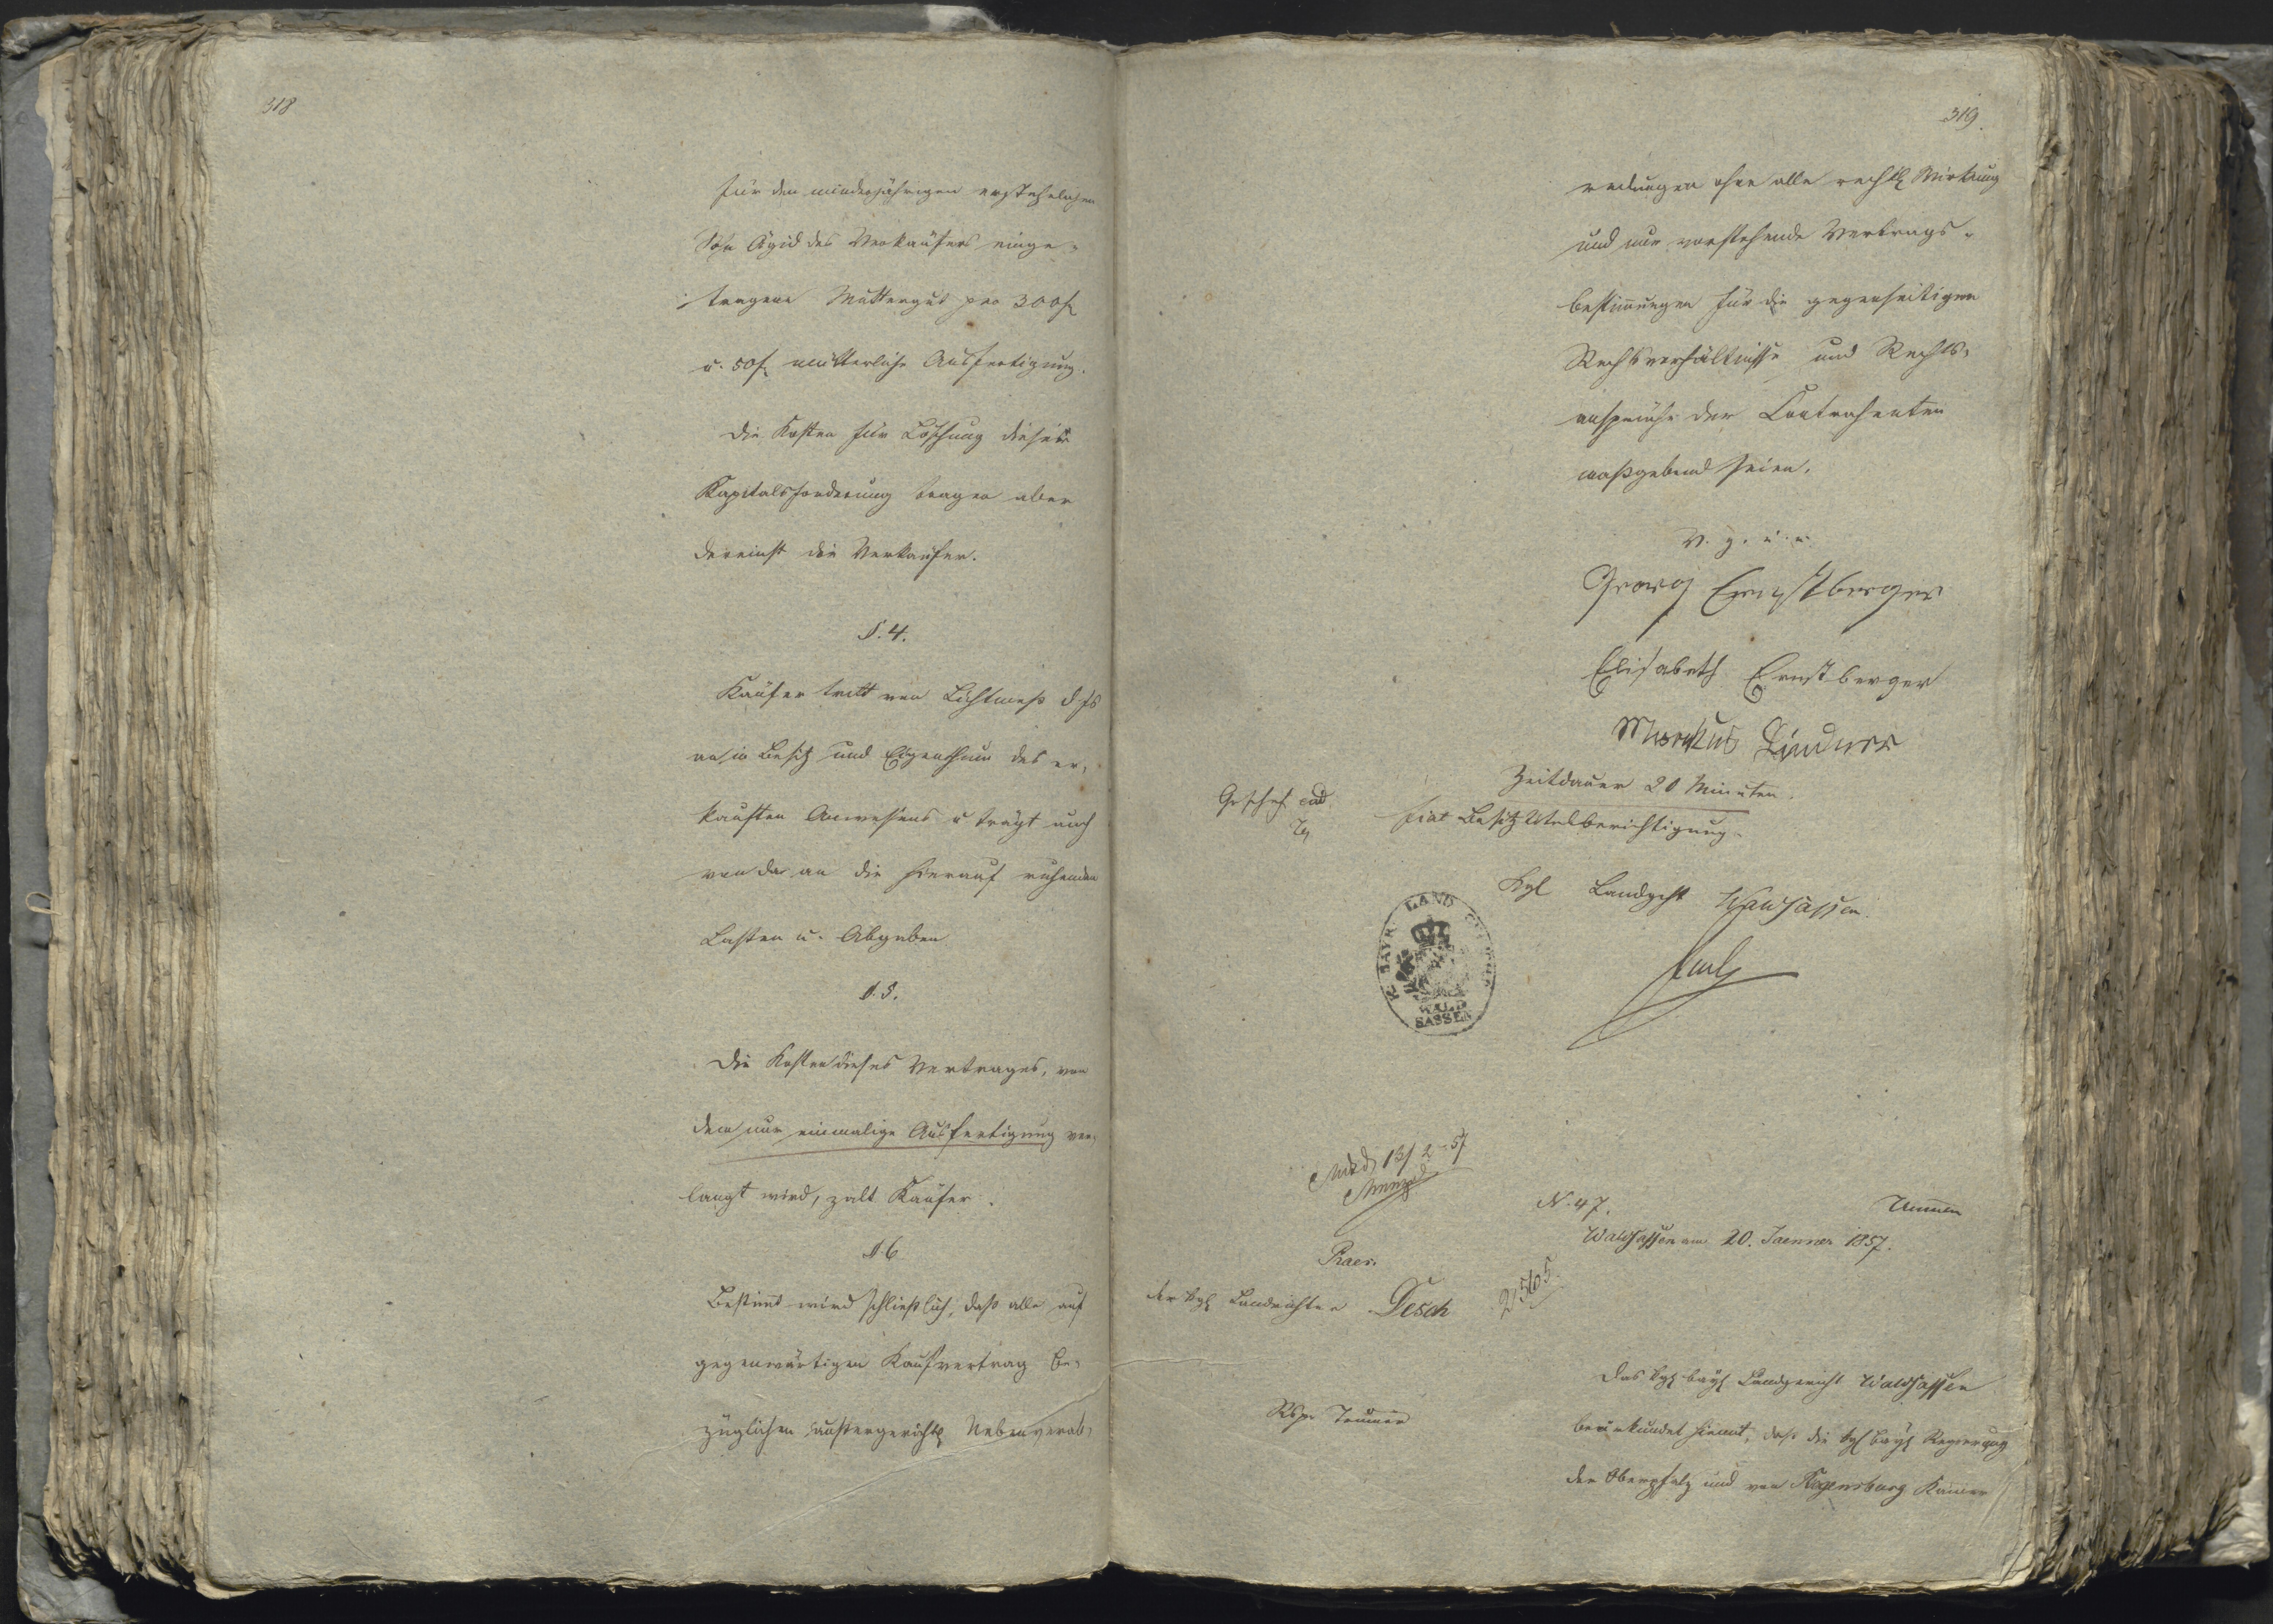 318
für den minderjährigen erstehelichen
Sohn Ägid des Verkäufers einge-
tragene Muttergut pro 300 f
u. 50 f mütterliche Ausfertigung.
Die Kosten für Löschung dieser
Kapitalsforderung tragen aber
dereinst die Verkäufer.
§. 4.
Käufer tritt von Lichtmeß d Js
an in Besitz und Eigenthum des er-
kauften Anwesens u trägt auch
von da an die hierauf ruhenden
Lasten u. Abgaben
§. 5.
Die Kosten dieses Vertrages, von
dem nur einmalige Ausfertigung ver-
langt wird, zalt Käufer.
§. 6
Bestimt wird schließlich, daß alle auf
gegenwärtigen Kaufvertrag be-
züglichen außergerichtl Nebenverab-
319.
redungen ohne alle rechtl Wirkung
und nur vorstehende Vertrags-
bestimungen für die gegenseitigen
Rechtsverhältnisse und Rechts-
ansprüche der Contrahenten
maßgebend seien.
V. g. u. u.
Georg Ernstberger
Elisabeth Ernstberger
Markus Lindner
Zeitdauer 20 Minuten.
Geschah ead
fiat Besitztitelberichtigung.
Kgl Landgcht Waldsassen.
K. BAYR. LAND GERICHT
WALD
SASSEN
13/2 57
N. 47.
Waldsassen am 20. Jaenner 1857.
Praes.
der kgl Landrichter Desch
2505.
Das kgl bayr Landgericht Waldsassen
beurkundet hiemit, daß die kgl bayr Regierung
der Oberpfalz und von Regensburg Kamer